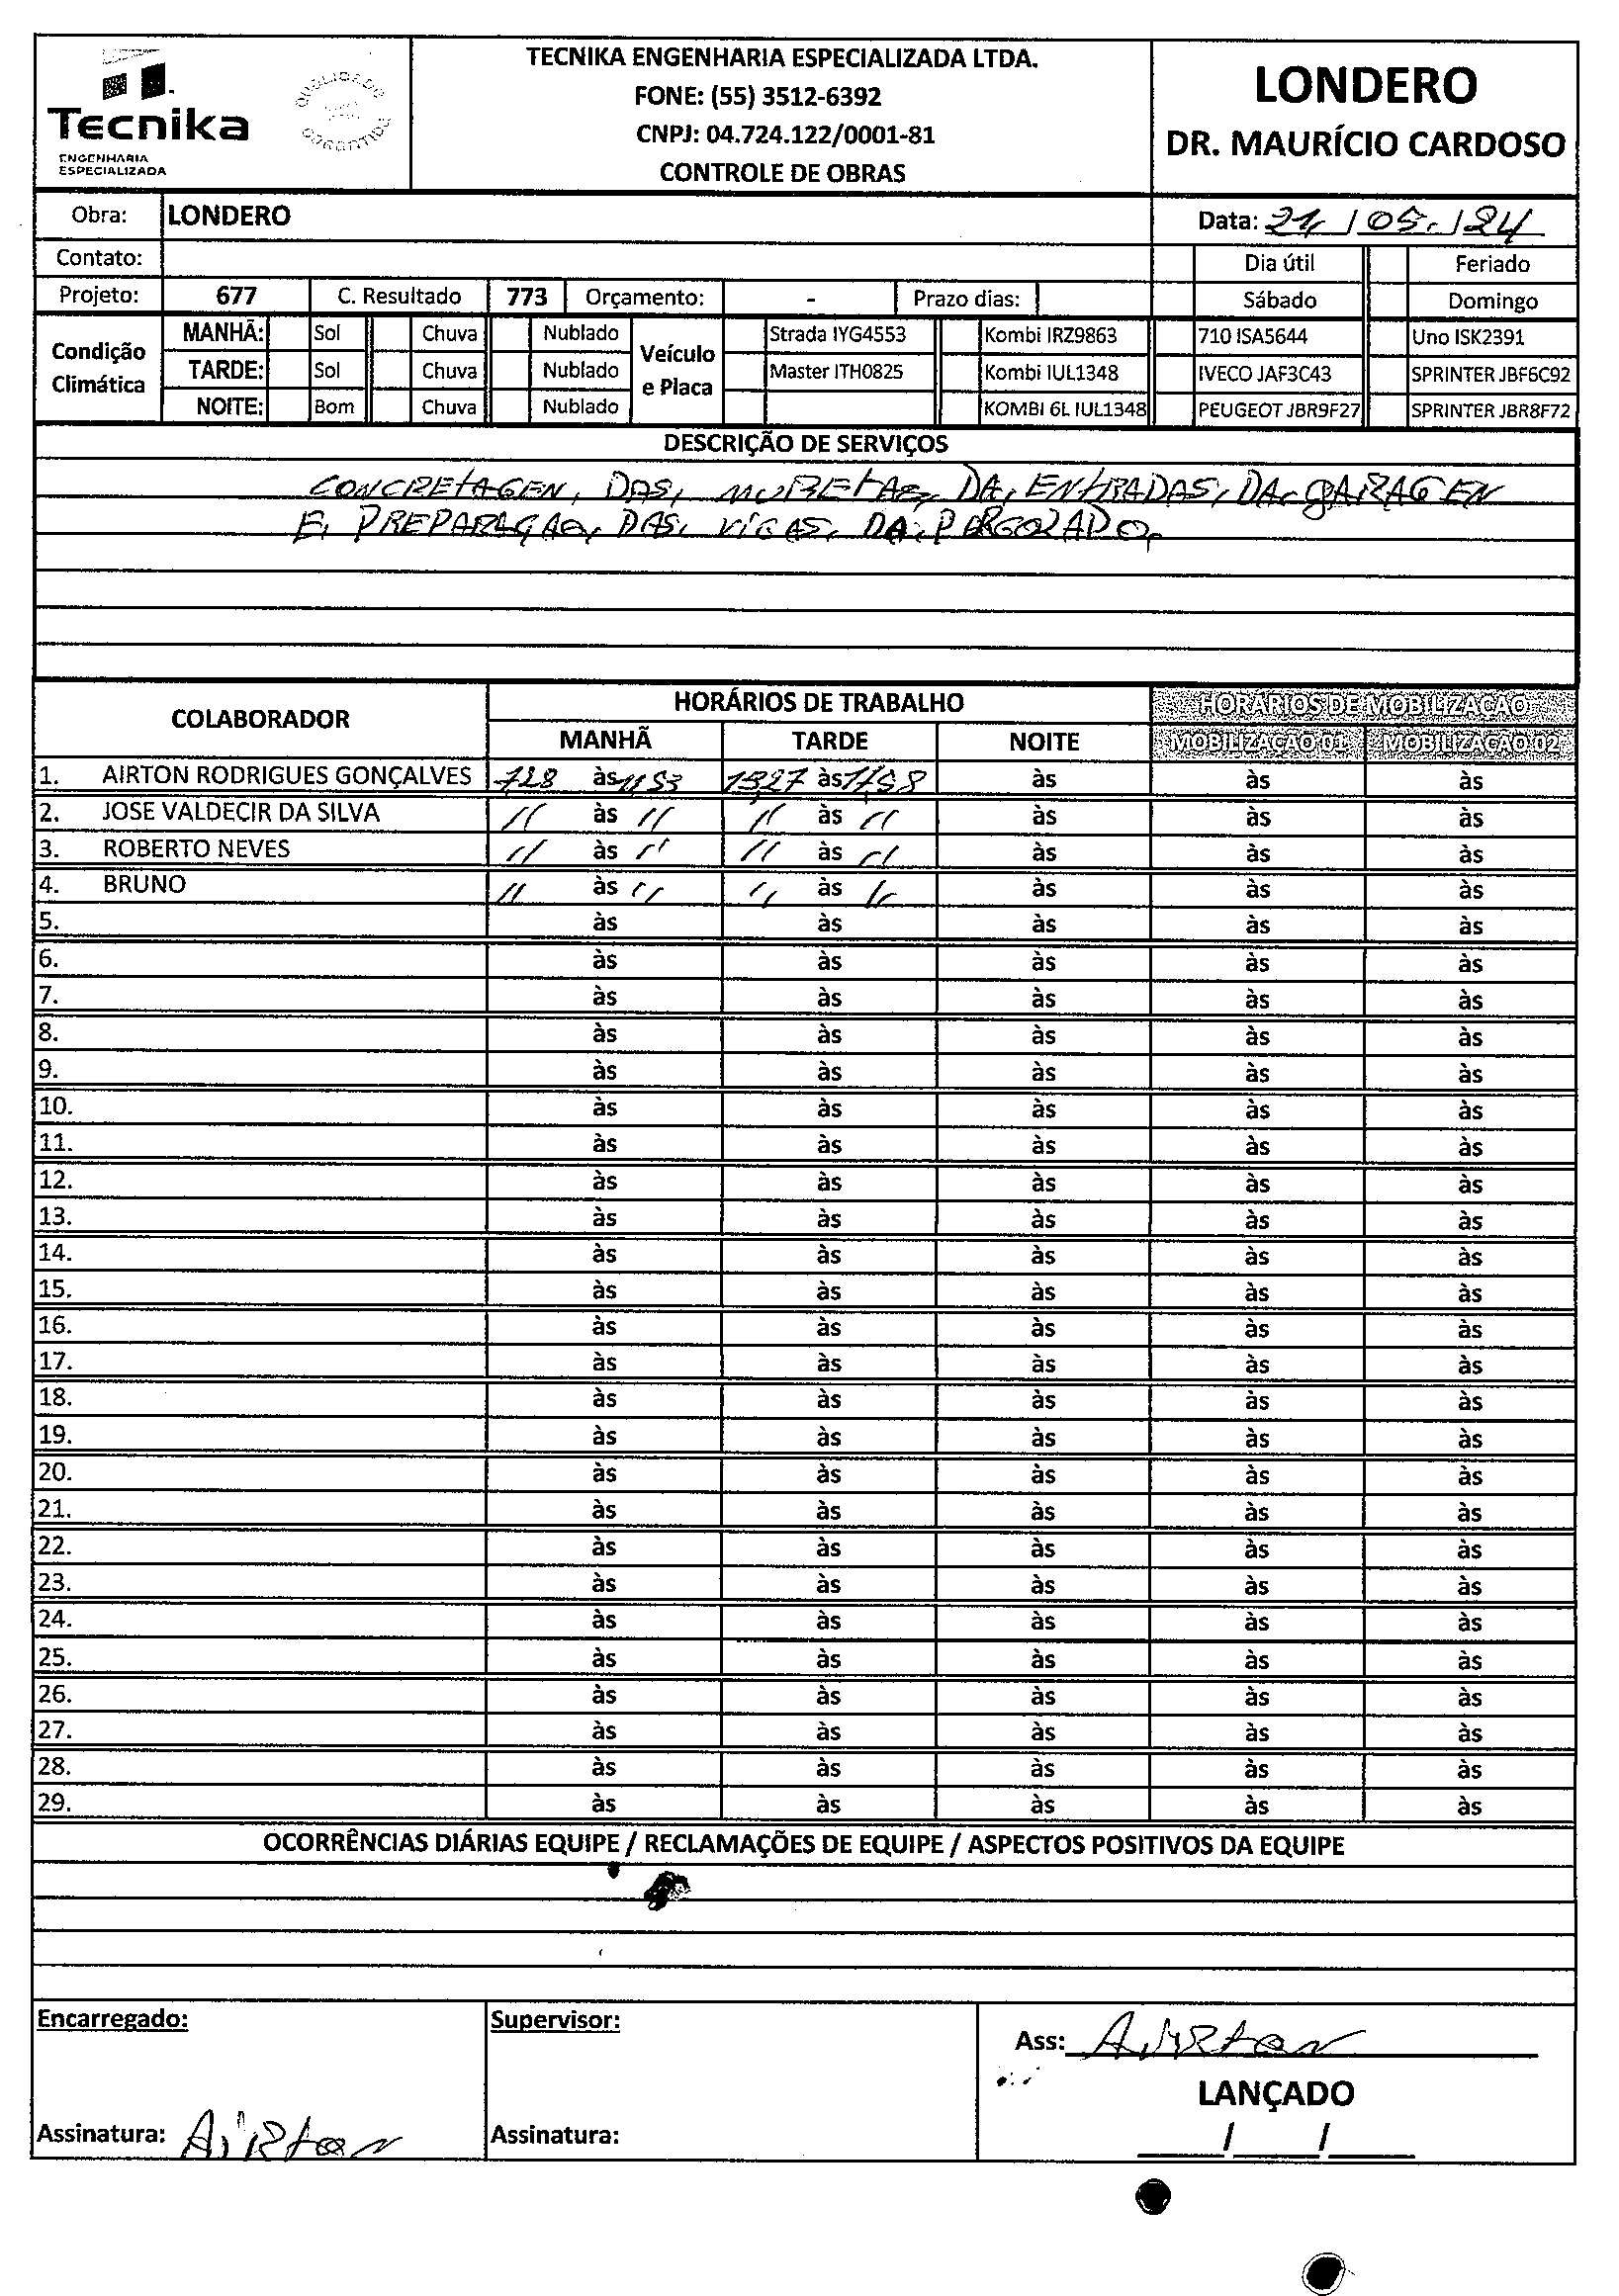 Tecnika
ENGENHARIA
ESPECIALIZADA
QUALIDADE
GARANTIDA
TECNIKA ENGENHARIA ESPECIALIZADA LTDA.
FONE: (55) 3512-6392
CNPJ: 04.724.122/0001-81
CONTROLE DE OBRAS
LONDERO
DR. MAURÍCIO CARDOSO
Obra: LONDERO Data: 21/05/24
Contato: Dia útil Feriado
Projeto: 677 C. Resultado 773 Orçamento: - Prazo dias: Sábado Domingo
Condição Climática
MANHÃ: Sol Chuva Nublado Veículo e Placa Strada IYG4553 Kombi IRZ9863 710 ISA5644 Uno ISK2391
TARDE: Sol Chuva Nublado Master ITH0825 Kombi IUL1348 IVECO JAF3C43 SPRINTER JBF6C92
NOITE: Bom Chuva Nublado KOMBI 6L IUL1348 PEUGEOT JBR9F27 SPRINTER JBR8F72
DESCRIÇÃO DE SERVIÇOS
CONCRETAGEN, DAS, MURETAS, DA, ENTRADAS, DA GARAGEN
E, PREPARAÇAO, DAS, VIGAS, DA, PERGOLADO,
COLABORADOR HORÁRIOS DE TRABALHO HORÁRIOS DE MOBILIZAÇÃO
MANHÃ TARDE NOITE MOBILIZAÇÃO 01 MOBILIZAÇÃO 02
1. AIRTON RODRIGUES GONÇALVES 728 às 1153 1327 às 1758 às às às
2. JOSE VALDECIR DA SILVA // às // // às // às às às
3. ROBERTO NEVES // às // // às // às às às
4. BRUNO // às // // às // às às às
5. às às às às às
6. às às às às às
7. às às às às às
8. às às às às às
9. às às às às às
10. às às às às às
11. às às às às às
12. às às às às às
13. às às às às às
14. às às às às às
15. às às às às às
16. às às às às às
17. às às às às às
18. às às às às às
19. às às às às às
20. às às às às às
21. às às às às às
22. às às às às às
23. às às às às às
24. às às às às às
25. às às às às às
26. às às às às às
27. às às às às às
28. às às às às às
29. às às às às às
OCORRÊNCIAS DIÁRIAS EQUIPE / RECLAMAÇÕES DE EQUIPE / ASPECTOS POSITIVOS DA EQUIPE
Encarregado: Supervisor: Ass: Airton
LANÇADO
Assinatura: Airton Assinatura: ___/___/___